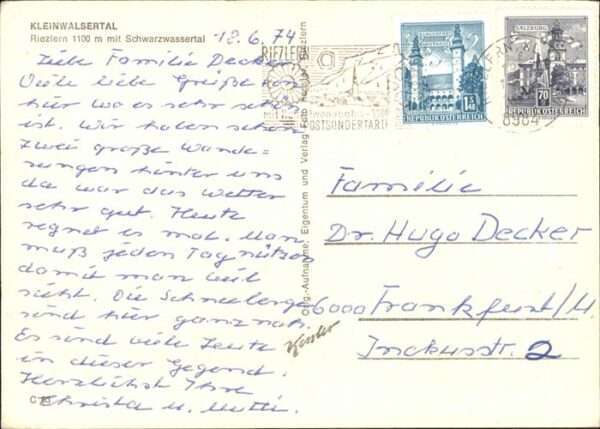 KLEINWALSERTAL
Riezlern 1100 m mit Schwarzwassertal
12.6.74
Liebe Familie Decker,
Viele liebe Grüße von
hier wo es sehr schön
ist. Wir haben schon
zwei große Wande=
rungen hinter uns
da war das Wetter
sehr gut. Heute
regnet es mal. Man
muß jeden Tag nützen
damit man viel
sieht. Die Schneeberge
sind hier ganz nah.
Es sind viele Leute
in dieser Gegend.
Herzlichst Ihre
Christa u. Mutti.
Orig.-Aufnahme, Eigentum und Verlag Foto Kessler Riezlern
Kessler
RIEZLERN
POSTSONDERTARIF
SALZBURG
1.50
REPUBLIK ÖSTERREICH
70
REPUBLIK ÖSTERREICH
Familie
Dr. Hugo Decker
6000 Frankfurt/M.
Inckusstr. 2